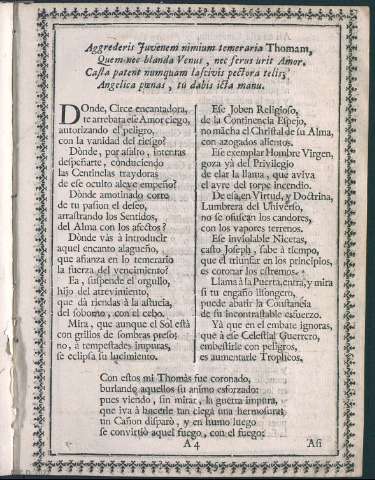 Aggrederis Juvenem nimium temeraria Thomam,
Quem nec blanda Venus, nec ferus urit Amor.
Casta patent numquam lascivis pectora telis,
Angelica pœnas, tù dabis icta manu.
DOnde, Circe encantadora,
te arrebata ese Amor ciego,
autorizando el peligro,
con la vanidad del riesgo?
Dònde, por asalto, intentas
despeñarte, conduciendo
las Centinelas traydoras
de ese oculto aleve empeño?
Dònde amotinado corre
de tu passion el deseo,
arrastrando los Sentidos,
del Alma con los afectos?
Dònde vàs à introducir
aquel encanto alagueño,
que afianza en lo temerario
la fuerza del vencimiento?
Ea, suspende el orgullo,
hijo del atrevimiento,
que dà riendas à la astucia,
del soborno, con el cebo.
Mira, que aunque el Sol està
con grillos de sombras preso;
no, à tempestades impuras,
se eclipsa su lucimiento.
Ese Joben Religioso,
de la Continencia Espejo,
no mācha el Christal de su Alma,
con azogados alientos.
Ese exemplar Hombre Virgen,
goza yà del Privilegio
de elar la llama, que aviva
el ayre del torpe incendio.
De esa, en Virtud, y Doctrina,
Lumbrera del Universo,
no se ofuscan los candores,
con los vapores terrenos.
Ese inviolable Nicetas,
casto Joseph, sabe à tiempo,
que el triunfar en los principios,
es coronar los estremos.
Llama à la Puerta, entra, y mira
si tu engaño lisongero,
puede abatir la Constancia
de su incontrastable esfuerzo.
Yà que en el embate ignoras,
que à ese Celestial Guerrero,
embestirle con peligros,
es aumentarle Tropheos.
Con estos mi Thomàs fue coronado,
burlando aquellos su animo esforzado:
pues viendo, sin mirar, la guerra impura,
que iva à hacerle tan ciega una hermosura;
un Cañon disparò, y en humo luego
se convirtiò aquel fuego, con el fuego.
A 4
Asi